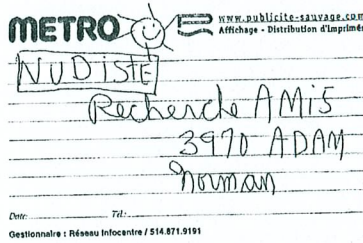 METRO
www.publicite-sauvage.com
Affichage - Distribution d'imprimés
NUDISTE
Recherche AMiS
3970 ADAM
Norman
Date: Tél.:
Gestionnaire : Réseau Infocentre / 514.871.9191